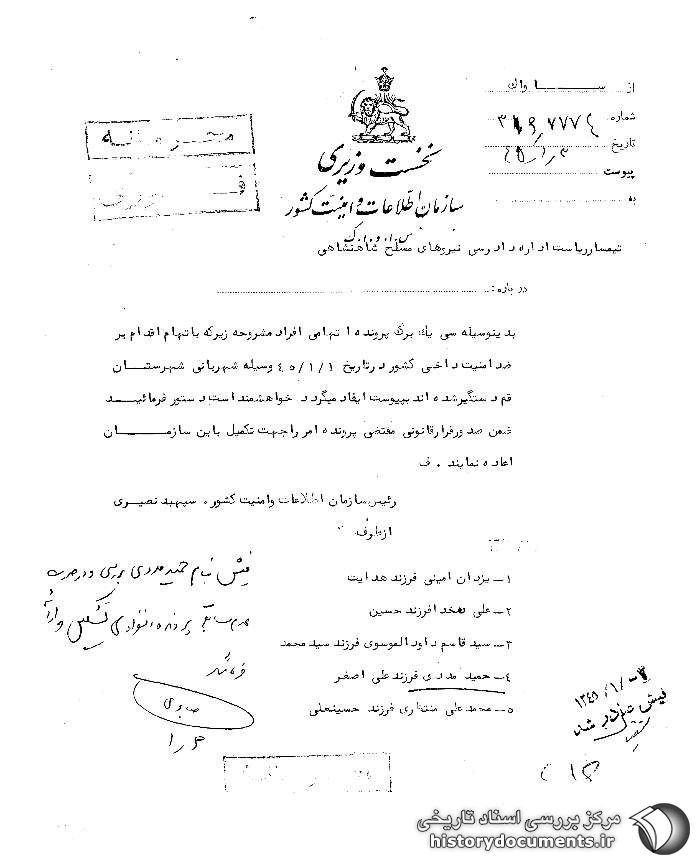 از ســـاواک
شماره ۳۱۶٫۷۷۷۴
تاریخ ۴۵٫۱٫۳
پیوست
به
محرمانه
نخست وزیری
سازمان اطلاعات و امنیت کشور
س.ا.و.ا.ک
تیمسار ریاست اداره دادرسی نیروهای مسلح شاهنشاهی
درباره :
بدینوسیله سی یک برگ پرونده اتهامی افراد مشروحه زیر که باتهام اقدام بر
ضد امنیت داخلی کشور در تاریخ ۴۵/۱/۱ وسیله شهربانی شهرستـــان
قم دستگیر شده اند بپیوست ایفاد میگردد خواهشمند است دستور فرمائیـد
ضمن صدور قرار قانونی مقتضی پرونده امر را جهت تکمیل باین سازمـــان
اعاده نمایند . ف
رئیس سازمان اطلاعات و امنیت کشور . سپهبد نصیری
از طرف
۱ـ یزدان امینی فرزند هدایت
۲ـ علی فرزند حسین
۳ـ سید قاسم داودالموسوی فرزند سید محمد
۴ـ حمید مددی فرزند علی اصغر
۵ـ محمد علی منتظری فرزند حسینعلی
فیش بنام حمید مددی بررسی و در صورت
عدم سابقه پرونده انفرادی تشکیل و ارائه
فرمائید
صابری
۳ر۱
۱۳۴۵/۱/۳
فیش صادر شد
مرکز بررسی اسناد تاریخی
historydocuments.ir